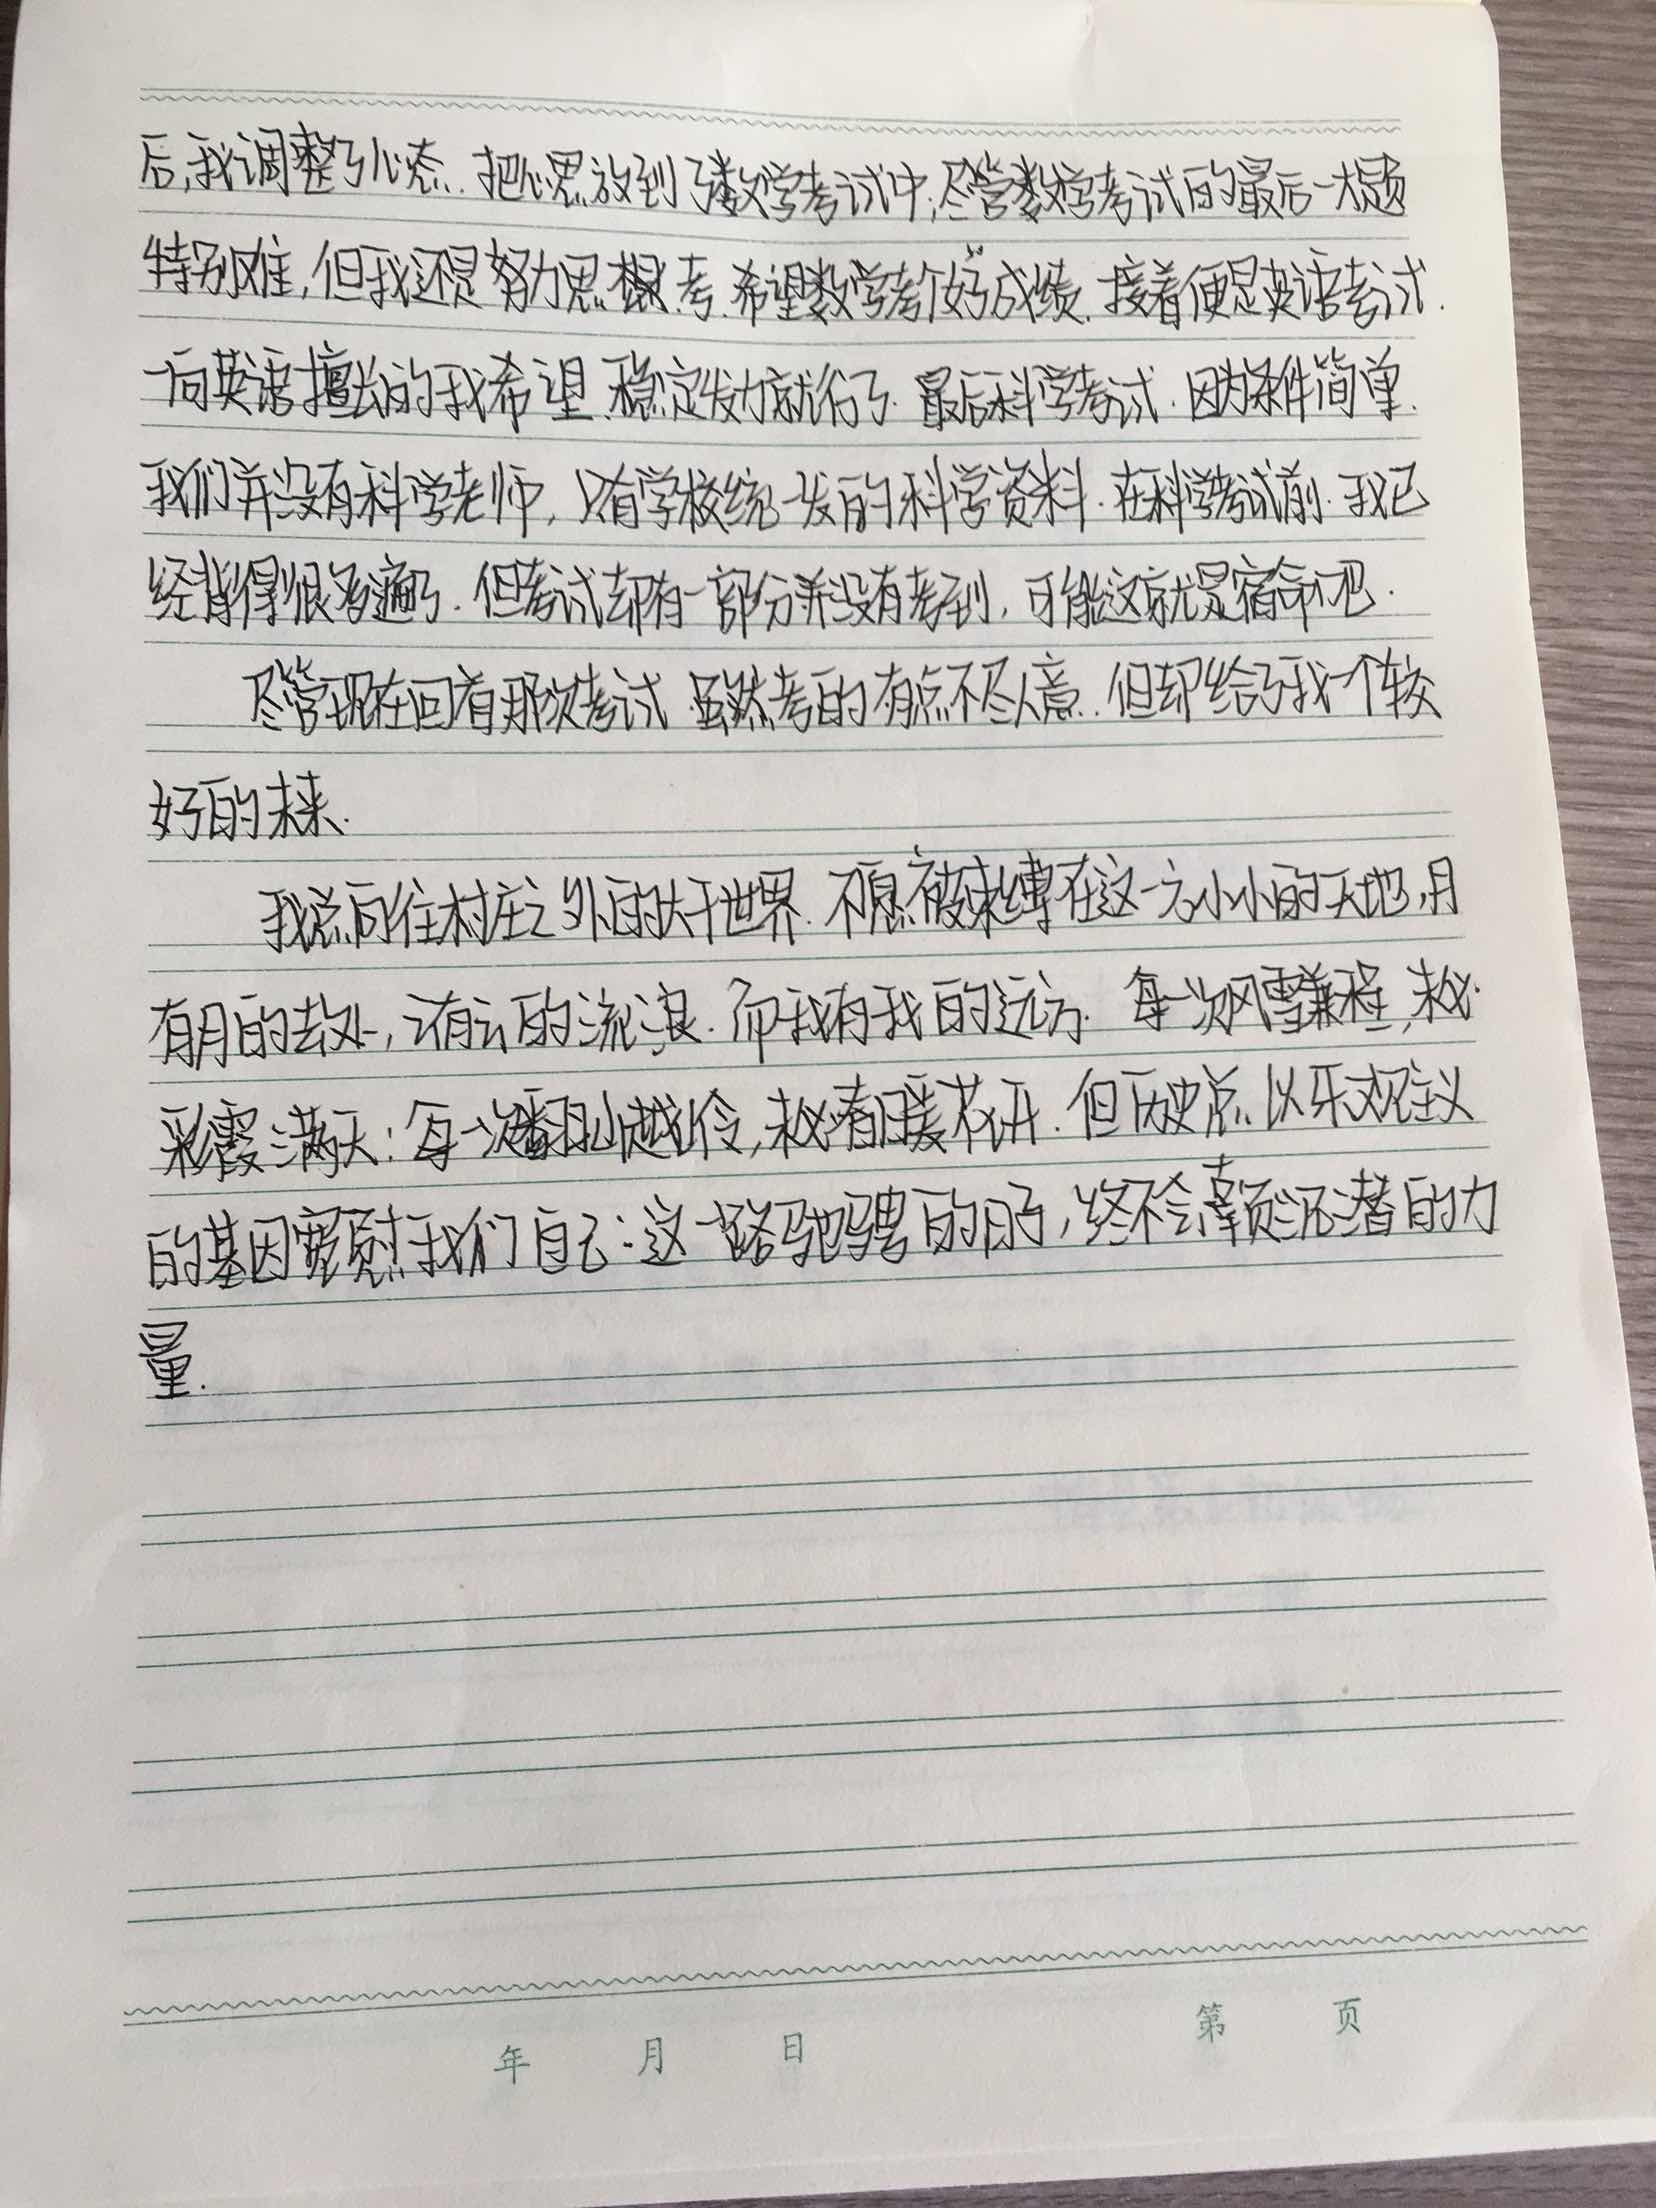 后,我调整了心态.把心思放到了数学考试中,尽管数学考试的最后一大题
特别难,但我还是努力思考.希望数学考个好成绩.接着便是英语考试.
一向英语擅长的我希望稳定发力就行了.最后科学考试.因为条件简单.
我们并没有科学老师,只有学校统一发的科学资料.在科学考试前.我已
经背得很多遍了.但考试却有一部分并没有考到,可能这就是宿命吧.
尽管现在回看那次考试.虽然考的有点不尽人意.但却给了我一个较
好的未来.
我总向往村庄之外的大千世界.不愿被束缚在这一方小小的天地,月
有月的去处,云有云的流浪.而我有我的远方.每一次风雪兼程,未必
彩霞满天;每一次翻山越伶,未必春暖花开.但历史总以乐观主义
的基因宽慰我们自己:这一路驰骋的日子,终不会辜负沉潜的力
量.
年 月 日
第 页